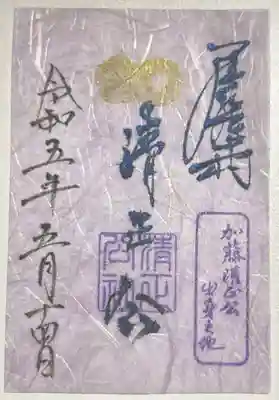 清正公
清正公社
加藤清正公
之地
令和五年 五月十四日